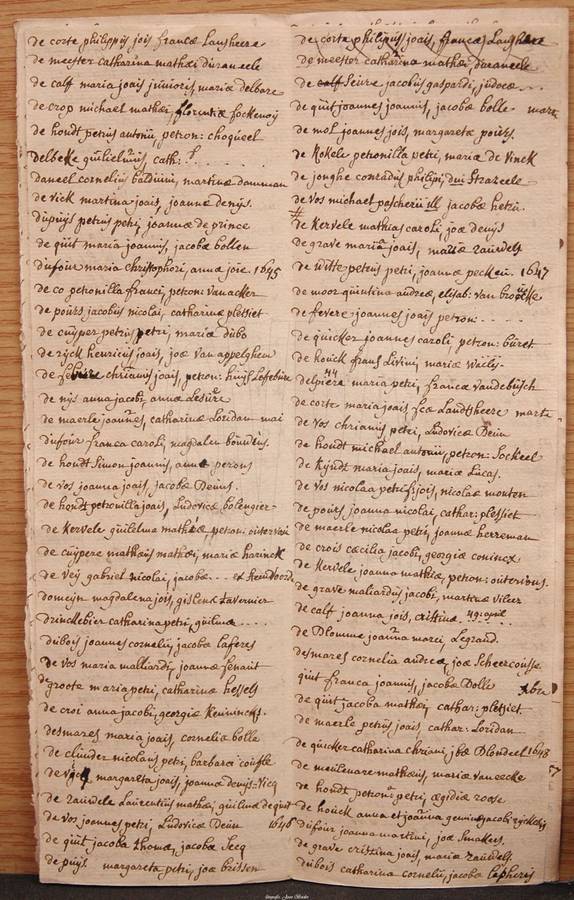 de corte philippus jois francæ Lansheere
de meester catharina mathei duraneele
de calf maria joais junioris mariæ delbare
de crop michael mathei florentiæ fockenoij
de hondt petrus antonii, petron: choqueel
delbeke guilielmus, cath:
daneel cornelius balduini, martinæ damman
de vick martina joais, joannæ denijs.
dupuijs petrus petri, joannæ de prince
de quit maria joannis, jacobæ bollen
dufour maria christophori, annæ joie 1645
de co petronilla franci, petron: vanacker
de pours jacobus nicolai, catharinæ plessiet
de cuijper petrus petri, mariæ dubo
de rijck henricus joais, joæ van appelghem
de chrianus joais, petron: huijs Lefebure
de nijs anna jacobi, annæ Lesure
de maerle joannes, catharinæ Loridan mai
dufour franca caroli, magdalen
de hondt simon joannis, annæ perons
de vos joanna joais, jacobæ Denius.
de hondt petronilla joais, Ludovicæ bolengier
de kervele guilelma mathiæ, petron: outervini
de cuijpere mathæus mathei, mariæ harinck
de veij gabriel nicolai, jacobæ
domeijn magdalena jois, gislenæ tavernier
drincklebier catharina petri, guilinæ
dubois joannes cornelij, jacobæ laseres
de vos maria malliardi, joannæ senauit
de groote maria petri, catharinæ hessels
de croi anna jacobi, georgiæ
desmares maria joais, corneliæ bolle
de clunder nicolaus petri, barbara
de margareta joais, joannæ denijs
de zaundele Laurentius mathei, guilinæ de quit
de vos joannes petri, Ludovicæ Deun 1646
de quit jacoba thomæ, jacobæ Seeq
de puijs margareta petri, joæ brissen
de corte philippus joais, francæ Langhere
de meester catharina mathei duraneele
de calf Seure jacobus gaspardi, judocæ
de quit joannes joannis, jacobæ bolle marti
de mol joannes jois, margareta pours.
de Kokele petronilla petri, mariæ de vinck
de jonghe conradus philippi, dni Strazeele
de vos michael pescherii ill jacobæ
de kervele mathias caroli, joæ denijs
de grave maria joais, mariæ
de witte petrus petri, joannæ 1647
de moor quintina andreæ, elisab: van
de fevere joannes joais petron:
de quicker joannes caroli, petron: buret
de houck frans Livini, mariæ
delpiere maria petri, francæ vandebusch
de corte maria joais fcæ Landtsheere marti
de vos chrianus petri, Ludovicæ Deun
de hondt michael antonii, petron: Sockeel
de maria joais, mariæ Lucas.
de vos nicolaa petri jois, nicolaæ mouton
de pours joanna nicolai, cathar: plessiet
de maerle nicolaa petri, joannæ herreman
de crois cæcilia jacobi, georgiæ coninex
de kervele joanna mathiæ, petron: outervins.
de grave maliardus jacobi, martinæ
de calf joanna jois, cristinæ 29: april
de Blomme joanna marci, Legrand.
desmares cornelia andreæ, joæ Scheercousse.
quit franca joannis, jacobæ Bolle xbris
de quit jacoba mathei, cathar: plessiet
de maerle petrus joais, cathar: Loridan
de quicker catharina chriani, jbæ Blondeel 1648
de meulenare mathæus, mariæ van eecke
de hondt petrona petri, ægidiæ roose
de houck anna et joanna gemini jacobi
dufour joanna martini, joæ Smakers.
de grave cristina joais, mariæ
dubois catharina cornelij, jacobæ